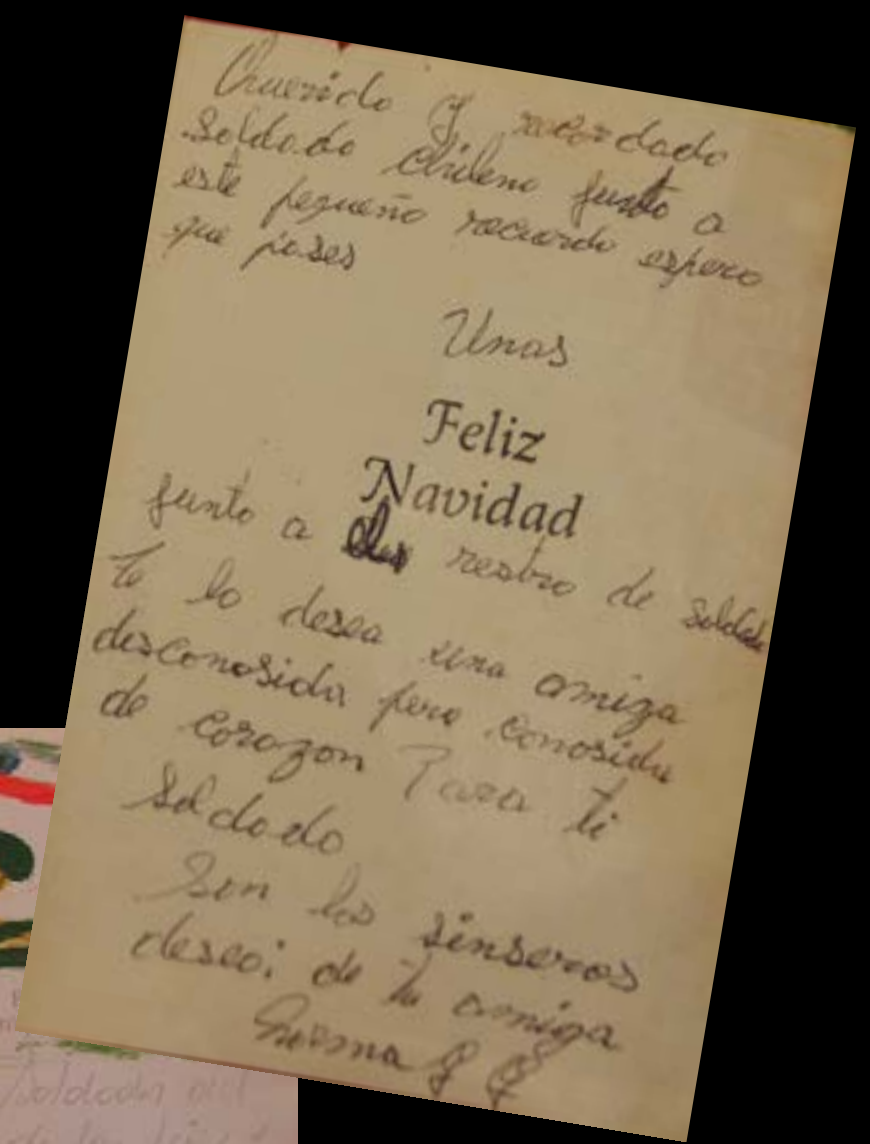 Querido y recordado
soldado chileno junto a
este pequeño recuerdo espero
que pases
Unas
Feliz
Navidad
junto a restro de soldado
te lo desea una amiga
desconosida pero conosida
de corazon Para ti
soldado
Son los sinseros
deseoi de tu amiga